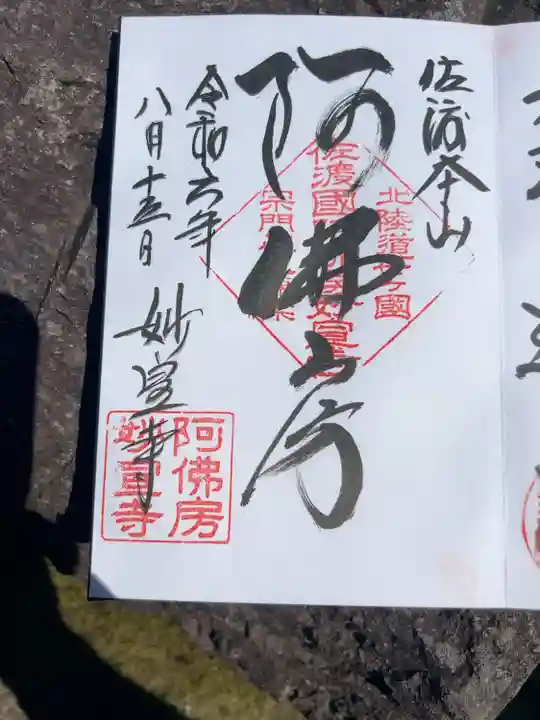 佐渡本山
阿佛房
令和六年
八月十五日
妙宣寺
北陸道七ヶ國
佐渡國
宗門
阿佛房
妙宣寺